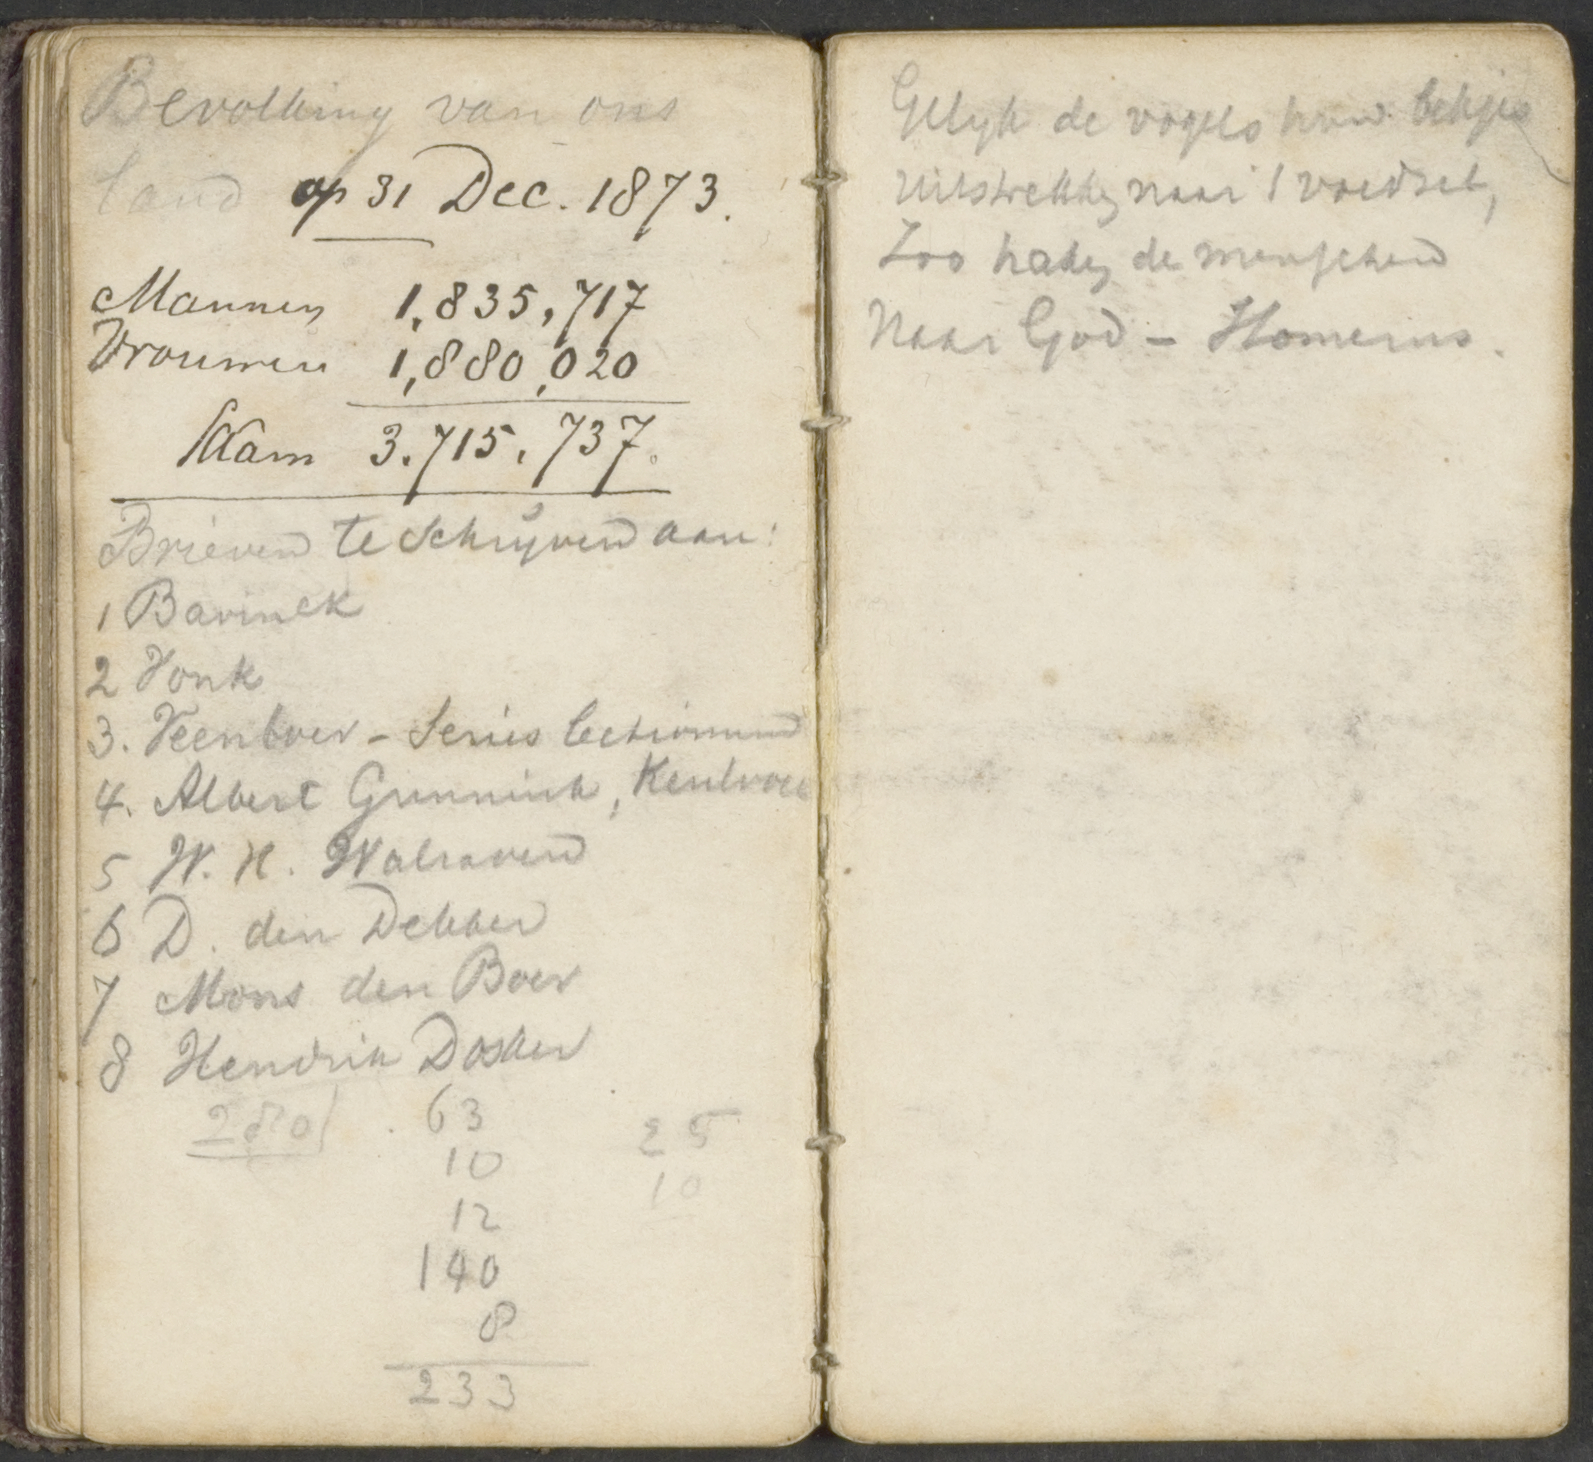 Bevolking van ons
land op 31 Dec. 1873.
Mannen 1,835,717
Vrouwen 1,880,020
3.715.737.
Brieven te schrijven aan:
1 Bavinck
2 Vonk
3. Veenboer - Series lectionum
4. Albert Gunnink,
5 W. H. Walraven
6 D. den Dekker
7 Mons den Boer
8 Hendrik Dosker
280 63 25
10 10
12
140
8
233
Gelijk de vogels hun bekjes
uitstrekken naar 't voedsel,
Zoo haken de menschen
Naar God - Homerus.